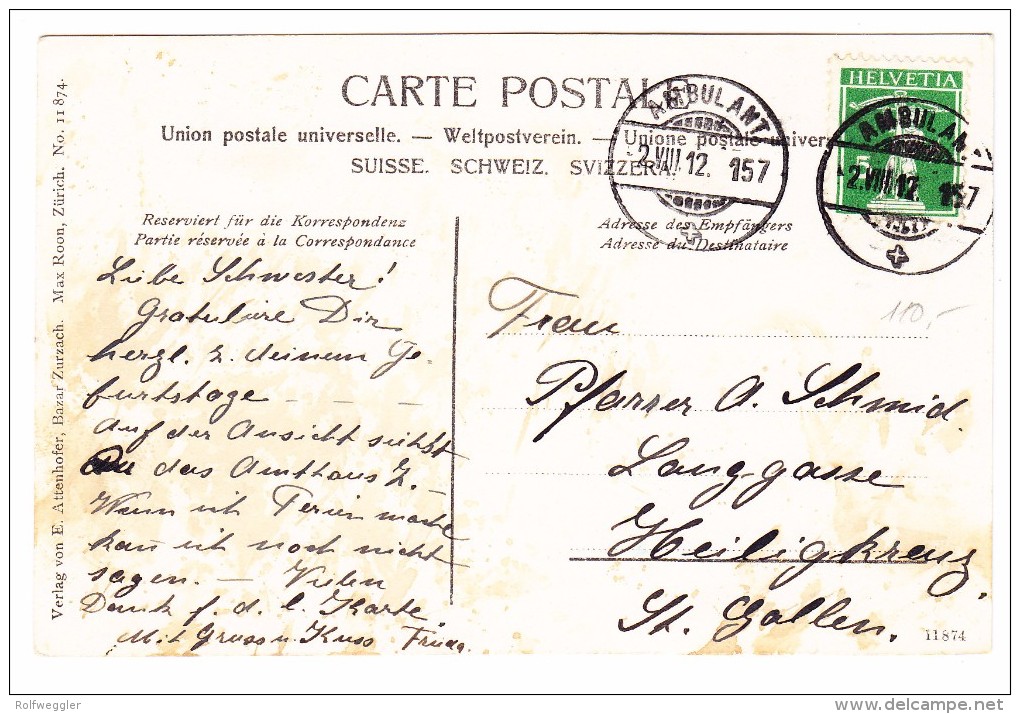 CARTE POSTALE
Union postale universelle. — Weltpostverein. — Unione postale univers
SUISSE. SCHWEIZ. SVIZZERA.
HELVETIA
5
AMBULANT
2.VIII.12. 157
AMBULANT
2.VIII.12. 157
Reserviert für die Korrespondenz
Partie réservée à la Correspondance
Adresse des Empfängers
Adresse du Destinataire
Liebe Schwester!
Gratuliere Dir
herzl. z. deinem Ge-
burtstage — — —
Auf der Ansicht siehst
Du das Amthaus Z. —
Wann ich Ferien mache
kan ich noch nicht
sagen. — Vielen
Dank f. d. l. Karte
Mit Gruss u. Kuss Frieda.
110,-
Frau
Pfarrer A. Schmid.
Langgasse
Heiligkreuz,
St. Gallen.
11874
Verlag von E. Attenhofer, Bazar Zurzach. Max Roon, Zürich. No. 11 874.
Rolfweggler
delcampe.net